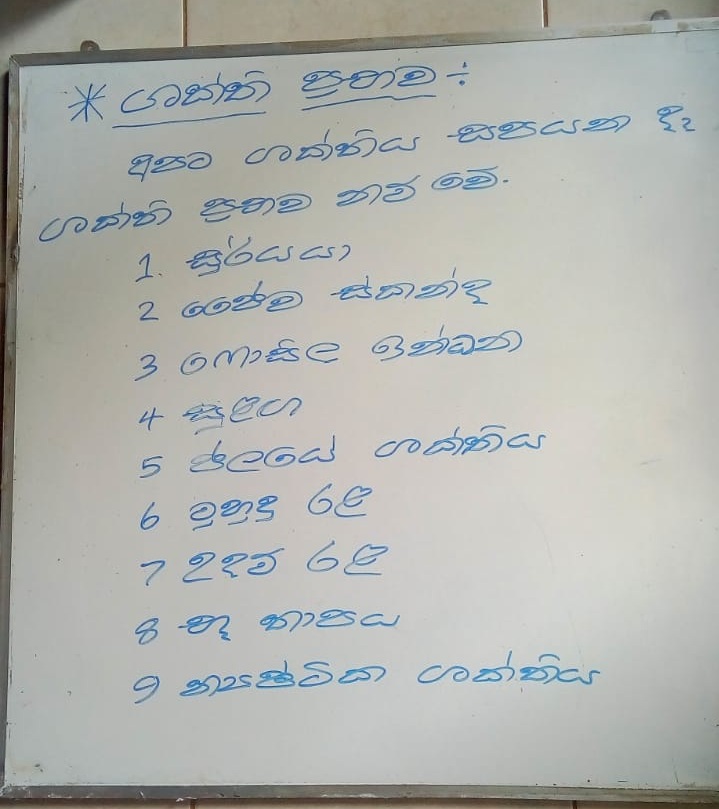 * ශක්ති ප්‍රභව ÷
අපට ශක්තිය සපයන දෑ
ශක්ති ප්‍රභව නම් වේ.
1. සූර්යයා
2 ජෛව ස්කන්ද
3 ෆොසිල ඉන්ධන
4 සුළග
5 ජලයේ ශක්තිය
6 මුහුදු රළ
7 උදම් රළ
8 භූ තාපය
9 න්‍යෂ්ටික ශක්තිය